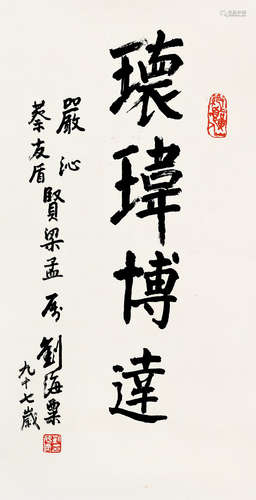 瓌瑋博達
嚴沁
蔡友盾
賢梁孟属
劉海粟
九十七歲